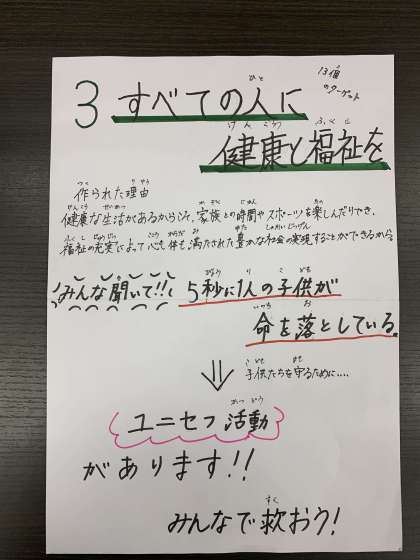 3 すべての人に
健康と福祉を
13個
のターゲット
作られた理由
健康な生活があるからこそ、家族との時間やスポーツを楽しんだりでき、
福祉の充実によって心も体も満たされた豊かな社会の実現することができるから。
みんな聞いて!!
5秒に1人の子供が
命を落としている。
子供たちを守るために....
ユニセフ活動
があります!!
みんなで救おう!